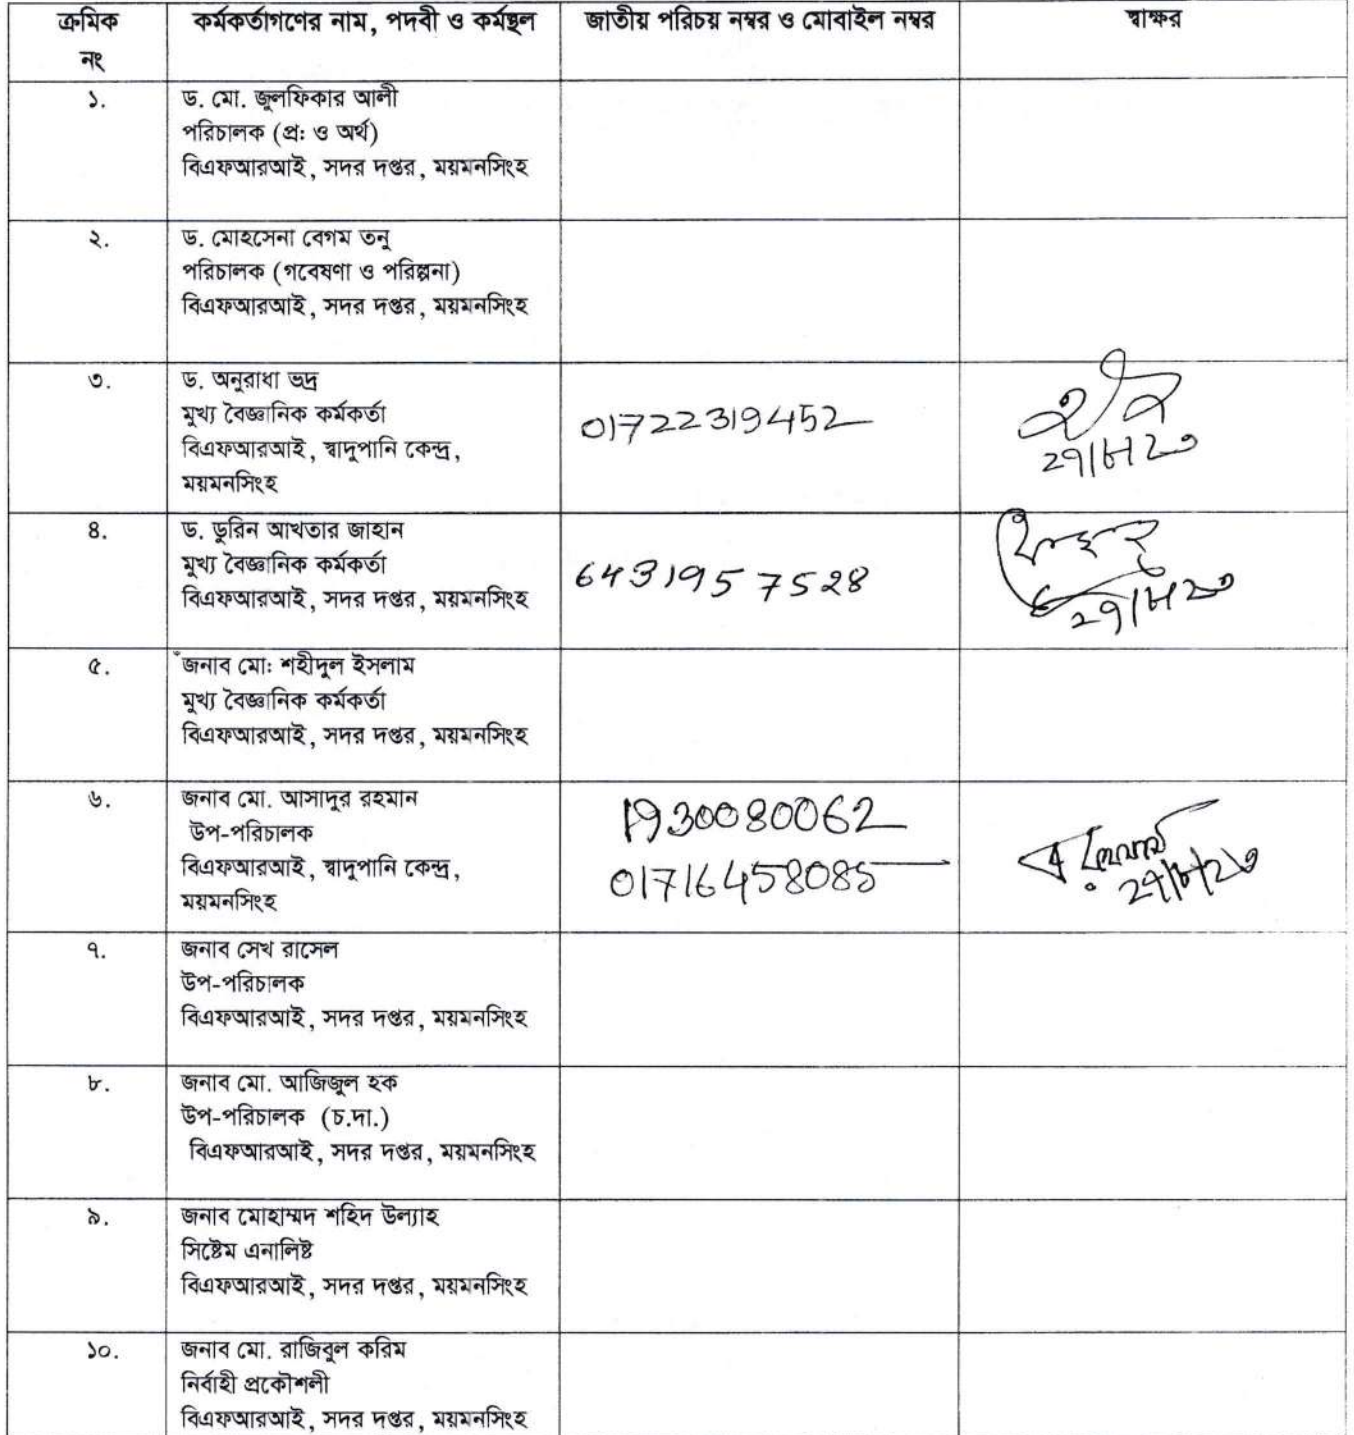 ক্রমিক নং	কর্মকর্তাগণের নাম, পদবী ও কর্মস্থল	জাতীয় পরিচয় নম্বর ও মোবাইল নম্বর	স্বাক্ষর
১.
ড. মো. জুলফিকার আলী
পরিচালক (প্র: ও অর্থ)
বিএফআরআই, সদর দপ্তর, ময়মনসিংহ
২.
ড. মোহসেনা বেগম তনু
পরিচালক (গবেষণা ও পরিল্পনা)
বিএফআরআই, সদর দপ্তর, ময়মনসিংহ
৩.
ড. অনুরাধা ভদ্র
মুখ্য বৈজ্ঞানিক কর্মকর্তা
বিএফআরআই, স্বাদুপানি কেন্দ্র,
ময়মনসিংহ
01722319452
২৭/৮/২৩
৪.
ড. ডুরিন আখতার জাহান
মুখ্য বৈজ্ঞানিক কর্মকর্তা
বিএফআরআই, সদর দপ্তর, ময়মনসিংহ
6431957528
২৭/৮/২৩
৫.
জনাব মো: শহীদুল ইসলাম
মুখ্য বৈজ্ঞানিক কর্মকর্তা
বিএফআরআই, সদর দপ্তর, ময়মনসিংহ
৬.
জনাব মো. আসাদুর রহমান
উপ-পরিচালক
বিএফআরআই, স্বাদুপানি কেন্দ্র,
ময়মনসিংহ
1930080062
01716458085
২৭/৮/২৩
৭.
জনাব সেখ রাসেল
উপ-পরিচালক
বিএফআরআই, সদর দপ্তর, ময়মনসিংহ
৮.
জনাব মো. আজিজুল হক
উপ-পরিচালক (চ.দা.)
বিএফআরআই, সদর দপ্তর, ময়মনসিংহ
৯.
জনাব মোহাম্মদ শহিদ উল্যাহ
সিষ্টেম এনালিষ্ট
বিএফআরআই, সদর দপ্তর, ময়মনসিংহ
১০.
জনাব মো. রাজিবুল করিম
নির্বাহী প্রকৌশলী
বিএফআরআই, সদর দপ্তর, ময়মনসিংহ